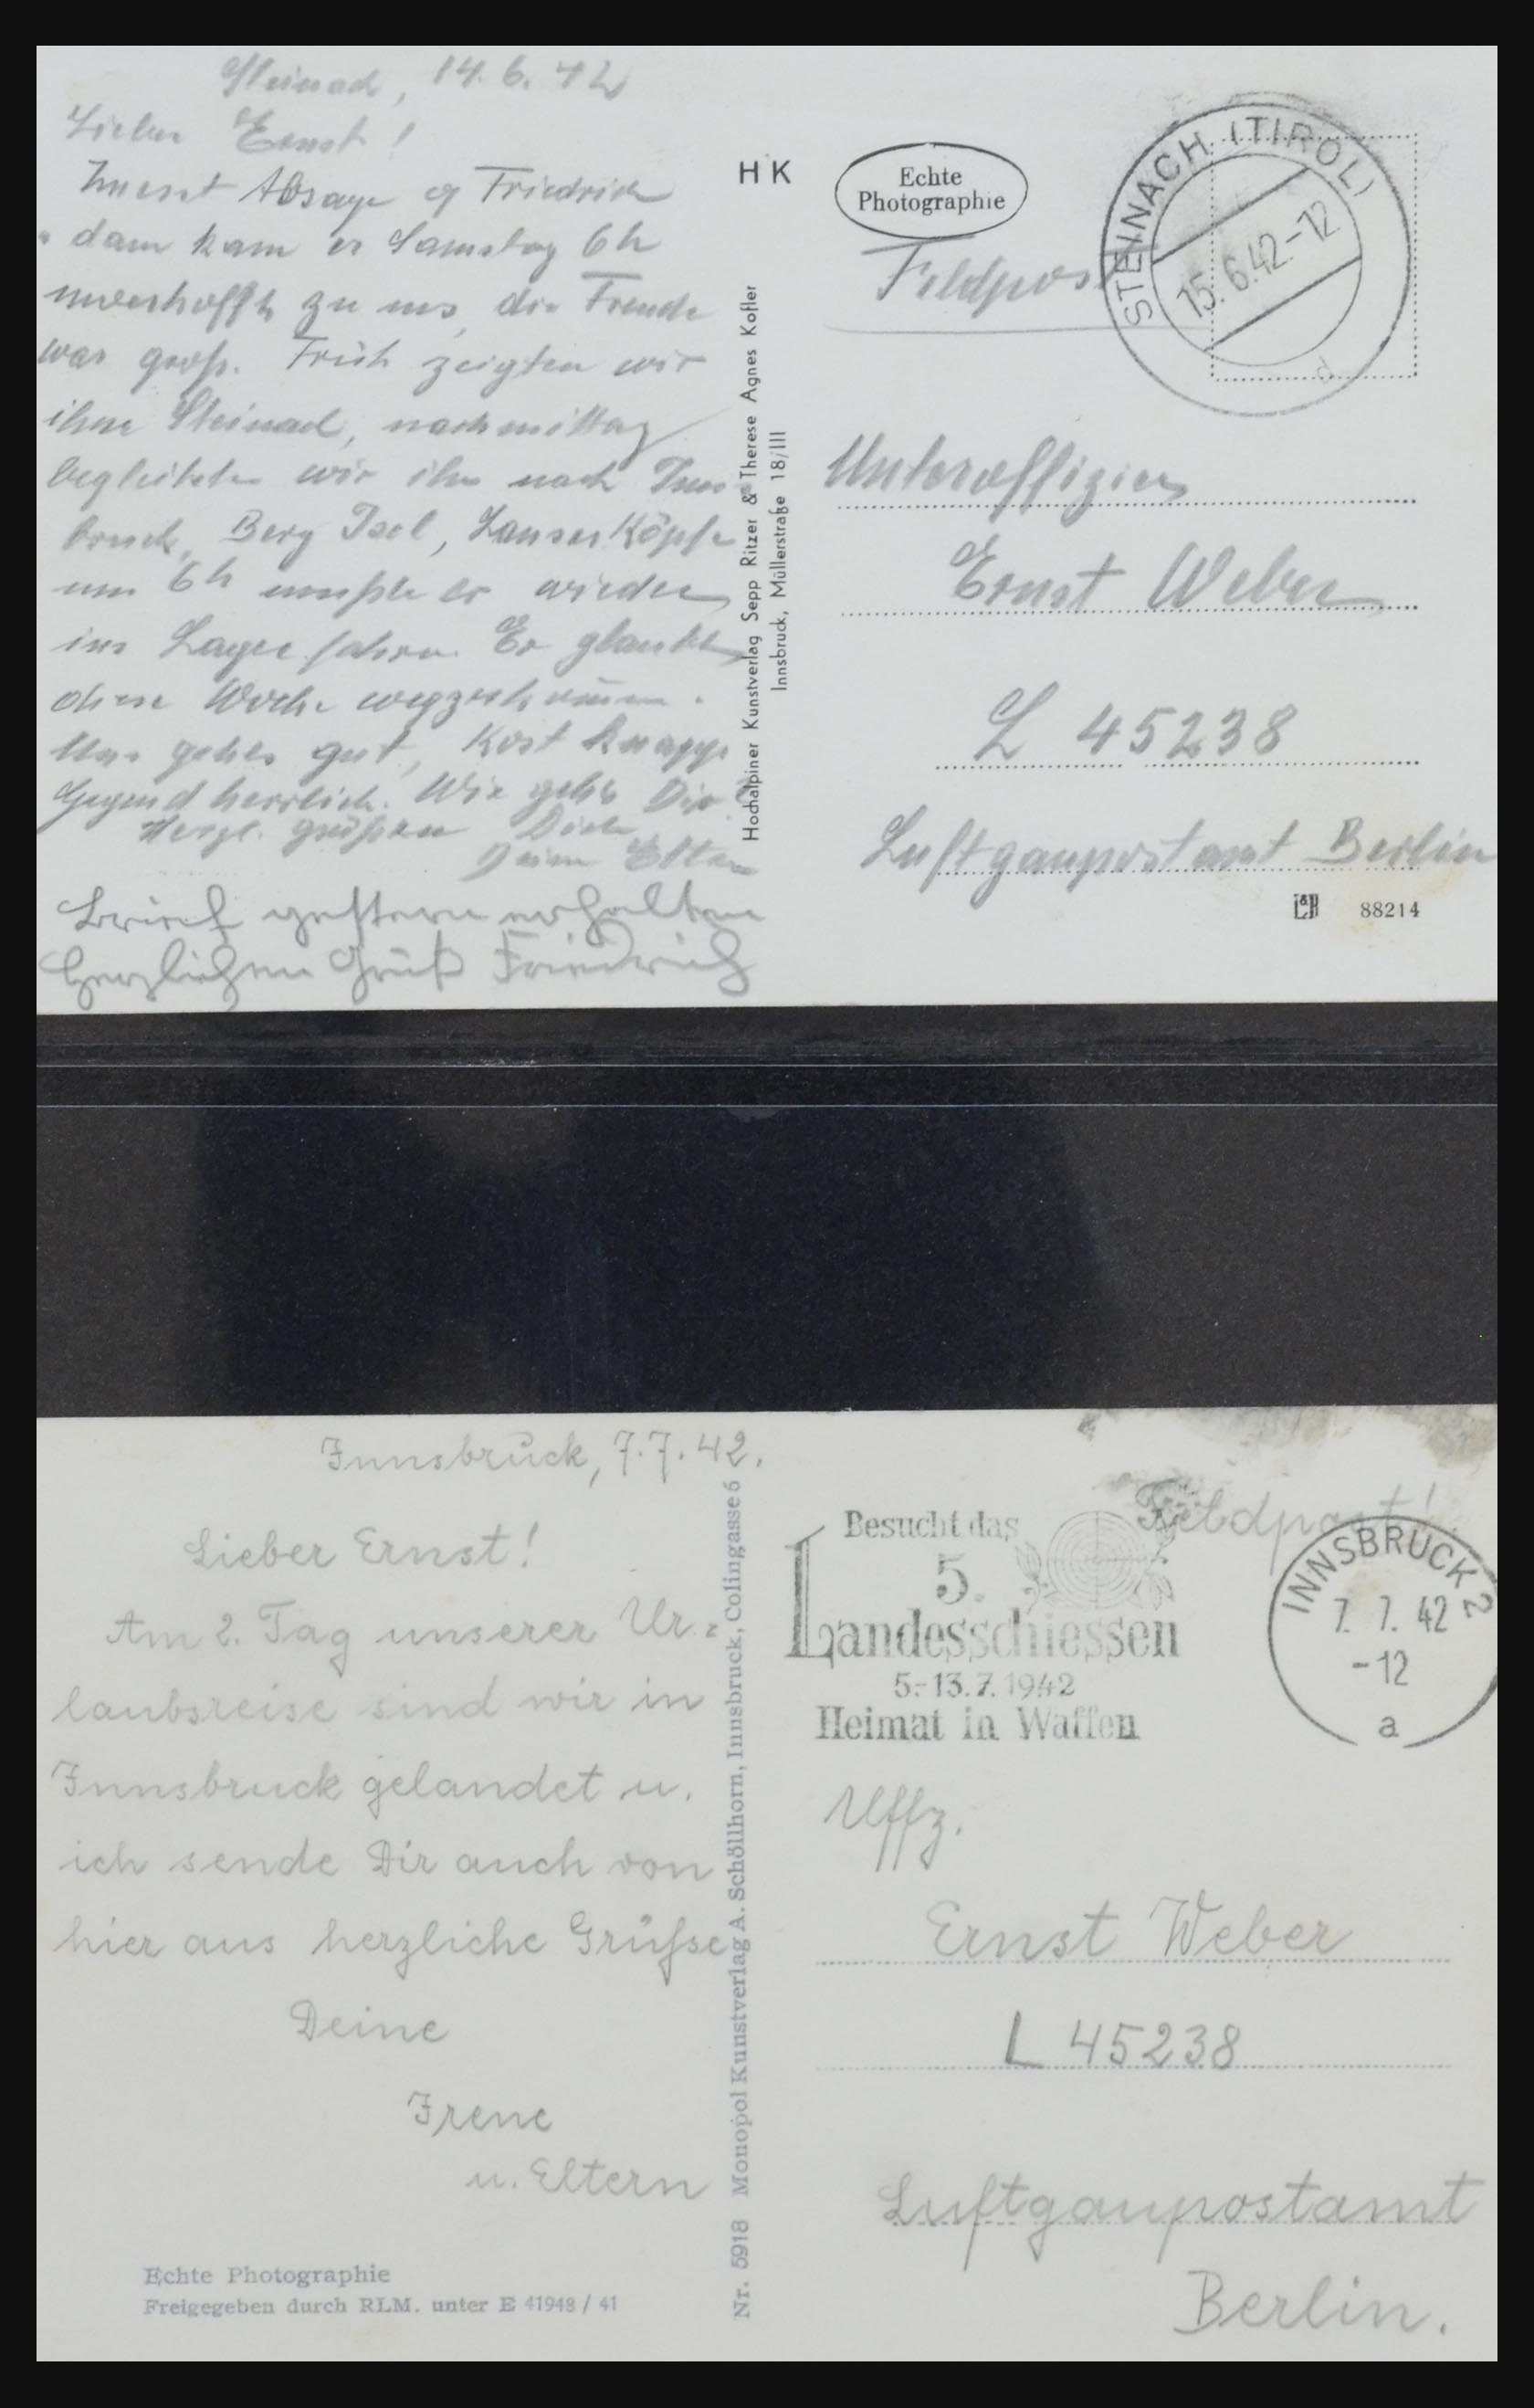 Steinach, 14.6.42
Lieber Ernst!
Zuerst Absage v Friedrich
dann kam er Samstag 6h
unverhofft zu uns, die Freude
war groß. Früh zeigten wir
ihm Steinach, nachmittag
begleiteten wir ihn nach Inns-
bruck, Berg Isel, Lanser Köpfe
um 6h mußte er wieder
ins Lager fahren. Er glaubt
diese Woche wegzukommen.
Uns gehts gut, Kost knapp
Gegend herrlich. Wie gehts Dir?
Herzl. grüßen Dich
Deine Eltern
Brief gestern erhalten
Herzlichen Gruß Friedrich
HK
Hochalpiner Kunstverlag Sepp Ritzer & Therese Agnes Kofler
Innsbruck, Müllerstraße 18/III
Echte
Photographie
Feldpost
STEINACH (TIROL)
15.6.42-12
d
Unteroffizier
Ernst Weber
L 45238
Luftgaupostamt Berlin
L&B 88214
Innsbruck, 7.7.42.
Lieber Ernst!
Am 2. Tag unserer Ur-
laubsreise sind wir in
Innsbruck gelandet u.
ich sende Dir auch von
hier aus herzliche Grüße
Deine
Irene
u. Eltern
Echte Photographie
Freigegeben durch RLM. unter E 41948 / 41
Nr. 5918 Monopol Kunstverlag A. Schöllhorn, Innsbruck, Colingasse 6
Feldpost!
Besucht das
5.
Landesschiessen
5.-13.7.1942
Heimat in Waffen
INNSBRUCK 2
7. 7. 42
-12
a
Uffz.
Ernst Weber
L 45238
Luftgaupostamt
Berlin.